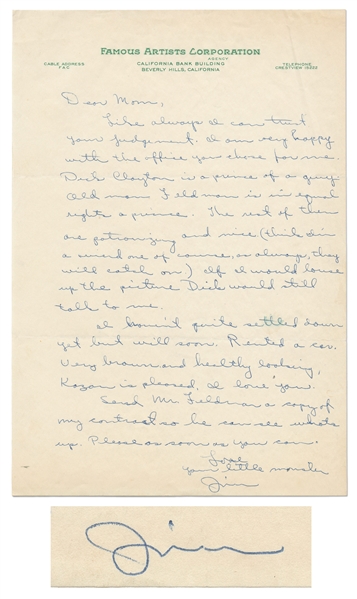 FAMOUS ARTISTS CORPORATION
AGENCY
CABLE ADDRESS
FAC
CALIFORNIA BANK BUILDING
BEVERLY HILLS, CALIFORNIA
TELEPHONE
CRESTVIEW
Dear Mom,
Like always I can trust
your judgement. I am very happy
with the office you chose for me.
Dick Clayton is a prince of a guy.
Old man Feldman is in equal
rights a prince. The rest of them
are patronizing and nice (think I'm
a weird one of course, as always, they
will catch on.) If I would louse
up the picture Dick would still
talk to me.
I havin't quite settled down
yet but will soon. Rented a car.
Very brown and healthy looking,
Kazan is pleased, I love you.
Send Mr. Feldman a copy of
my contract so he can see whats
up. Please as soon as you can.
Love
your little monster
Jim
Jim